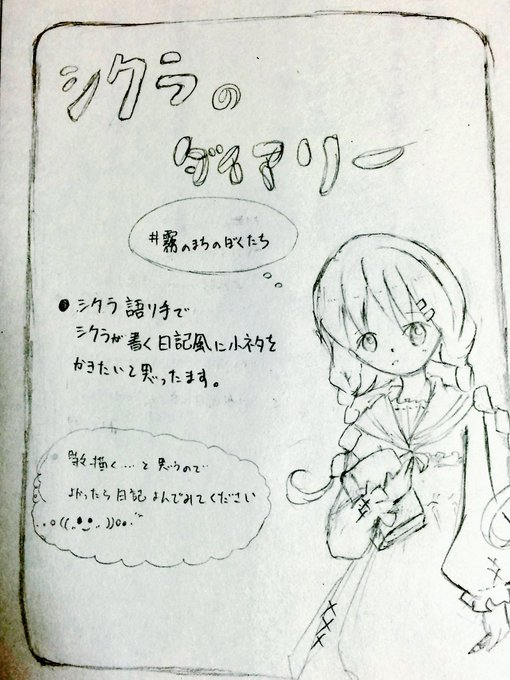 シクラの
ダイアリー
#霧のまちのぼくたち
シクラ語り手で
シクラが書く日記風に小ネタを
かきたいと思ったます。
描く…と思うので
よかったら日記よんでみてください